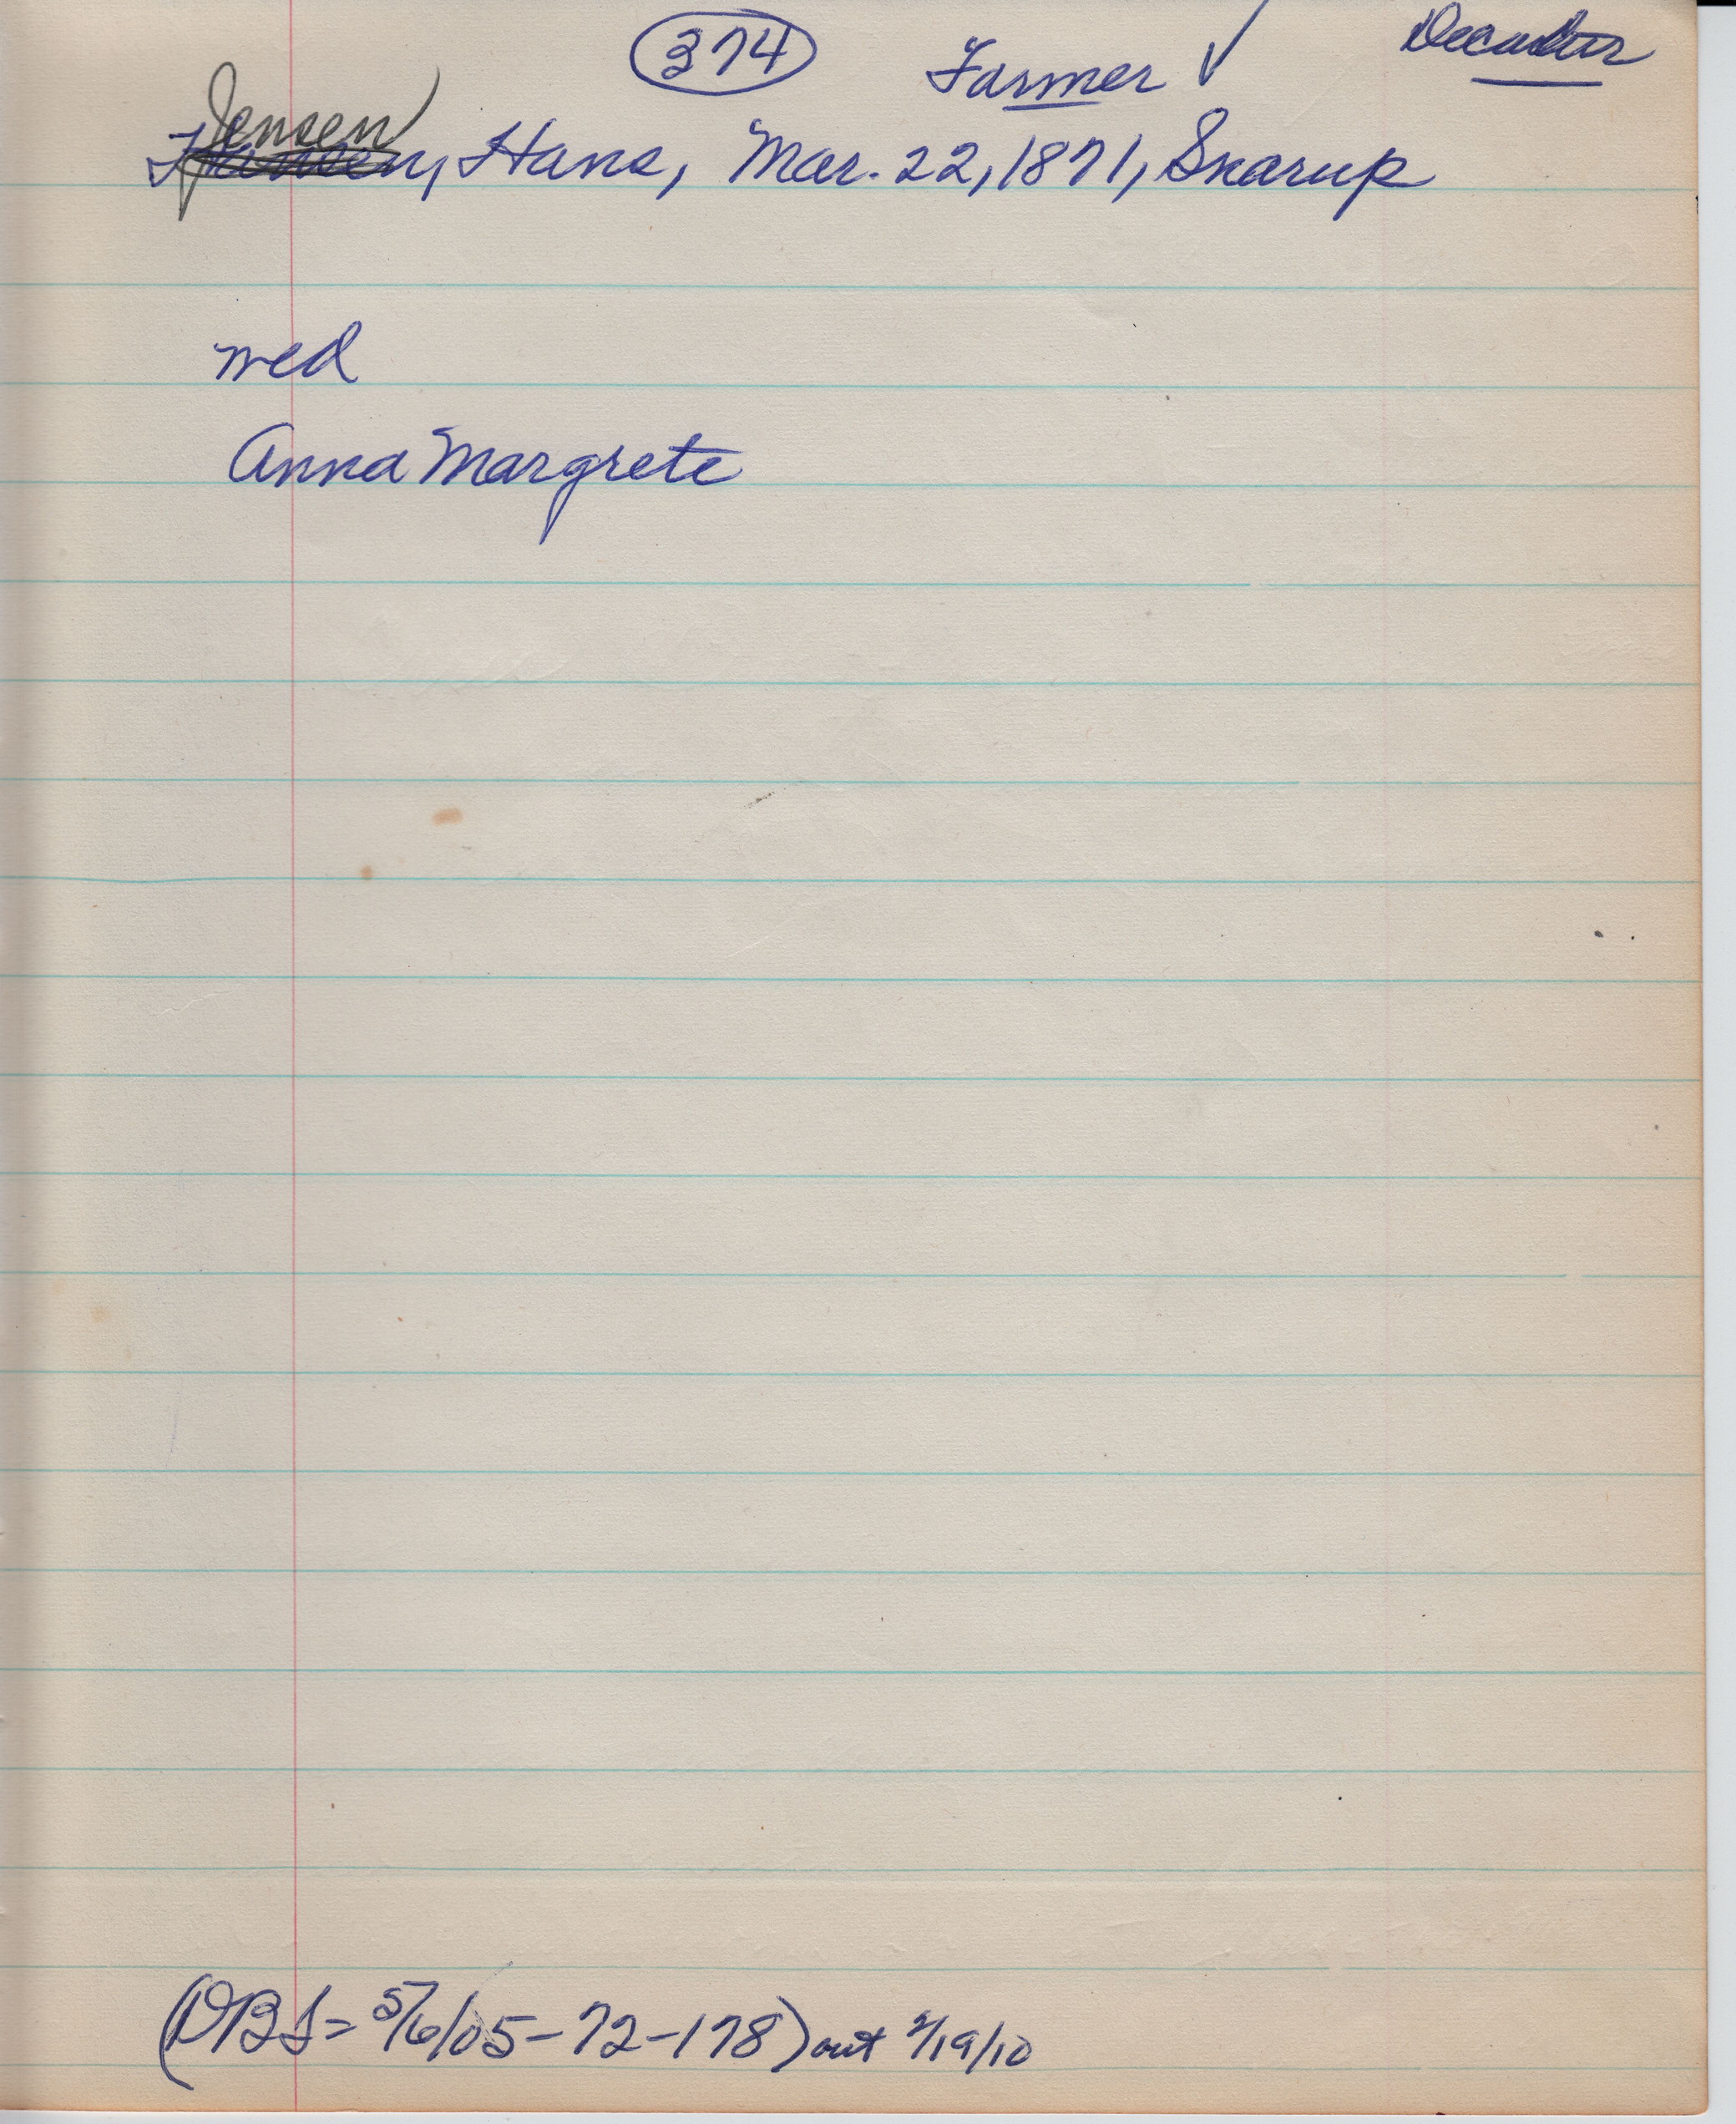 374 Farmer ✓ Decatur
Jensen
Hansen, Hans, Mar. 22, 1871, Skarup
wed
Anna Margrete
(DBS= 5/6/05-72-178) out 2/19/10